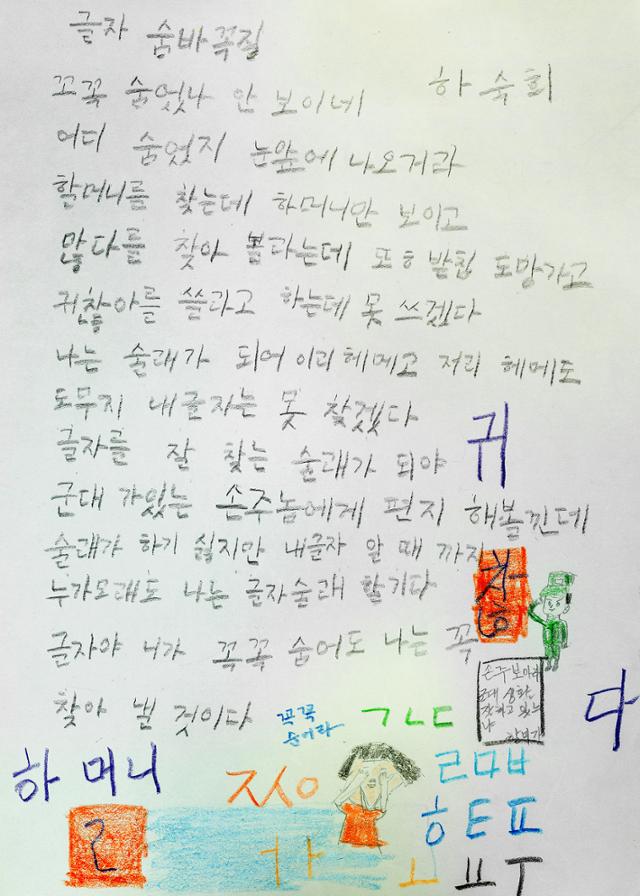 글자 숨바꼭질
하 숙희
꼬꼭 숨었나 안 보이네
어디 숨었지 눈앞에 나오거라
할머니를 찾는데 하머니만 보이고
많다를 찾아 볼라는데 또 ㅎ 받침 도망가고
귀찮아를 쓸라고 하는데 못 쓰겠다
나는 술래가 되어 이리 헤메고 저리 헤메도
도무지 내글자는 못 찾겠다
글자를 잘 찾는 술래가 되야
군대 가있는 손주놈에게 편지 해볼낀데
술래가 하기 싫지만 내글자 알 때 까지
누가모래도 나는 글자술래 할기다
글자야 니가 꼭꼭 숨어도 나는 꼭
찾아 낼 것이다
귀
찮
손주보아라
군대 생활
잘하고 있느
냐
다
꼭꼭
숨어라
ㄱㄴㄷ
하머니
ㄹ
ㅈㅅㅇ
ㄹㅁㅂ
ㅎㅌㅍ
ㅏㅑ
ㅗ ㅛㅜ